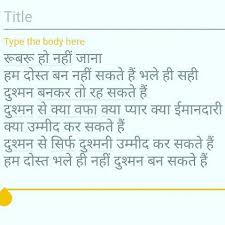 Title
Type the body here
रूबरू हो नहीं जाना
हम दोस्त बन नहीं सकते हैं भले ही सही
दुश्मन बनकर तो रह सकते हैं
दुश्मन से क्या वफा क्या प्यार क्या ईमानदारी
क्या उम्मीद कर सकते हैं
दुश्मन से सिर्फ दुश्मनी उम्मीद कर सकते हैं
हम दोस्त भले ही नहीं दुश्मन बन सकते हैं